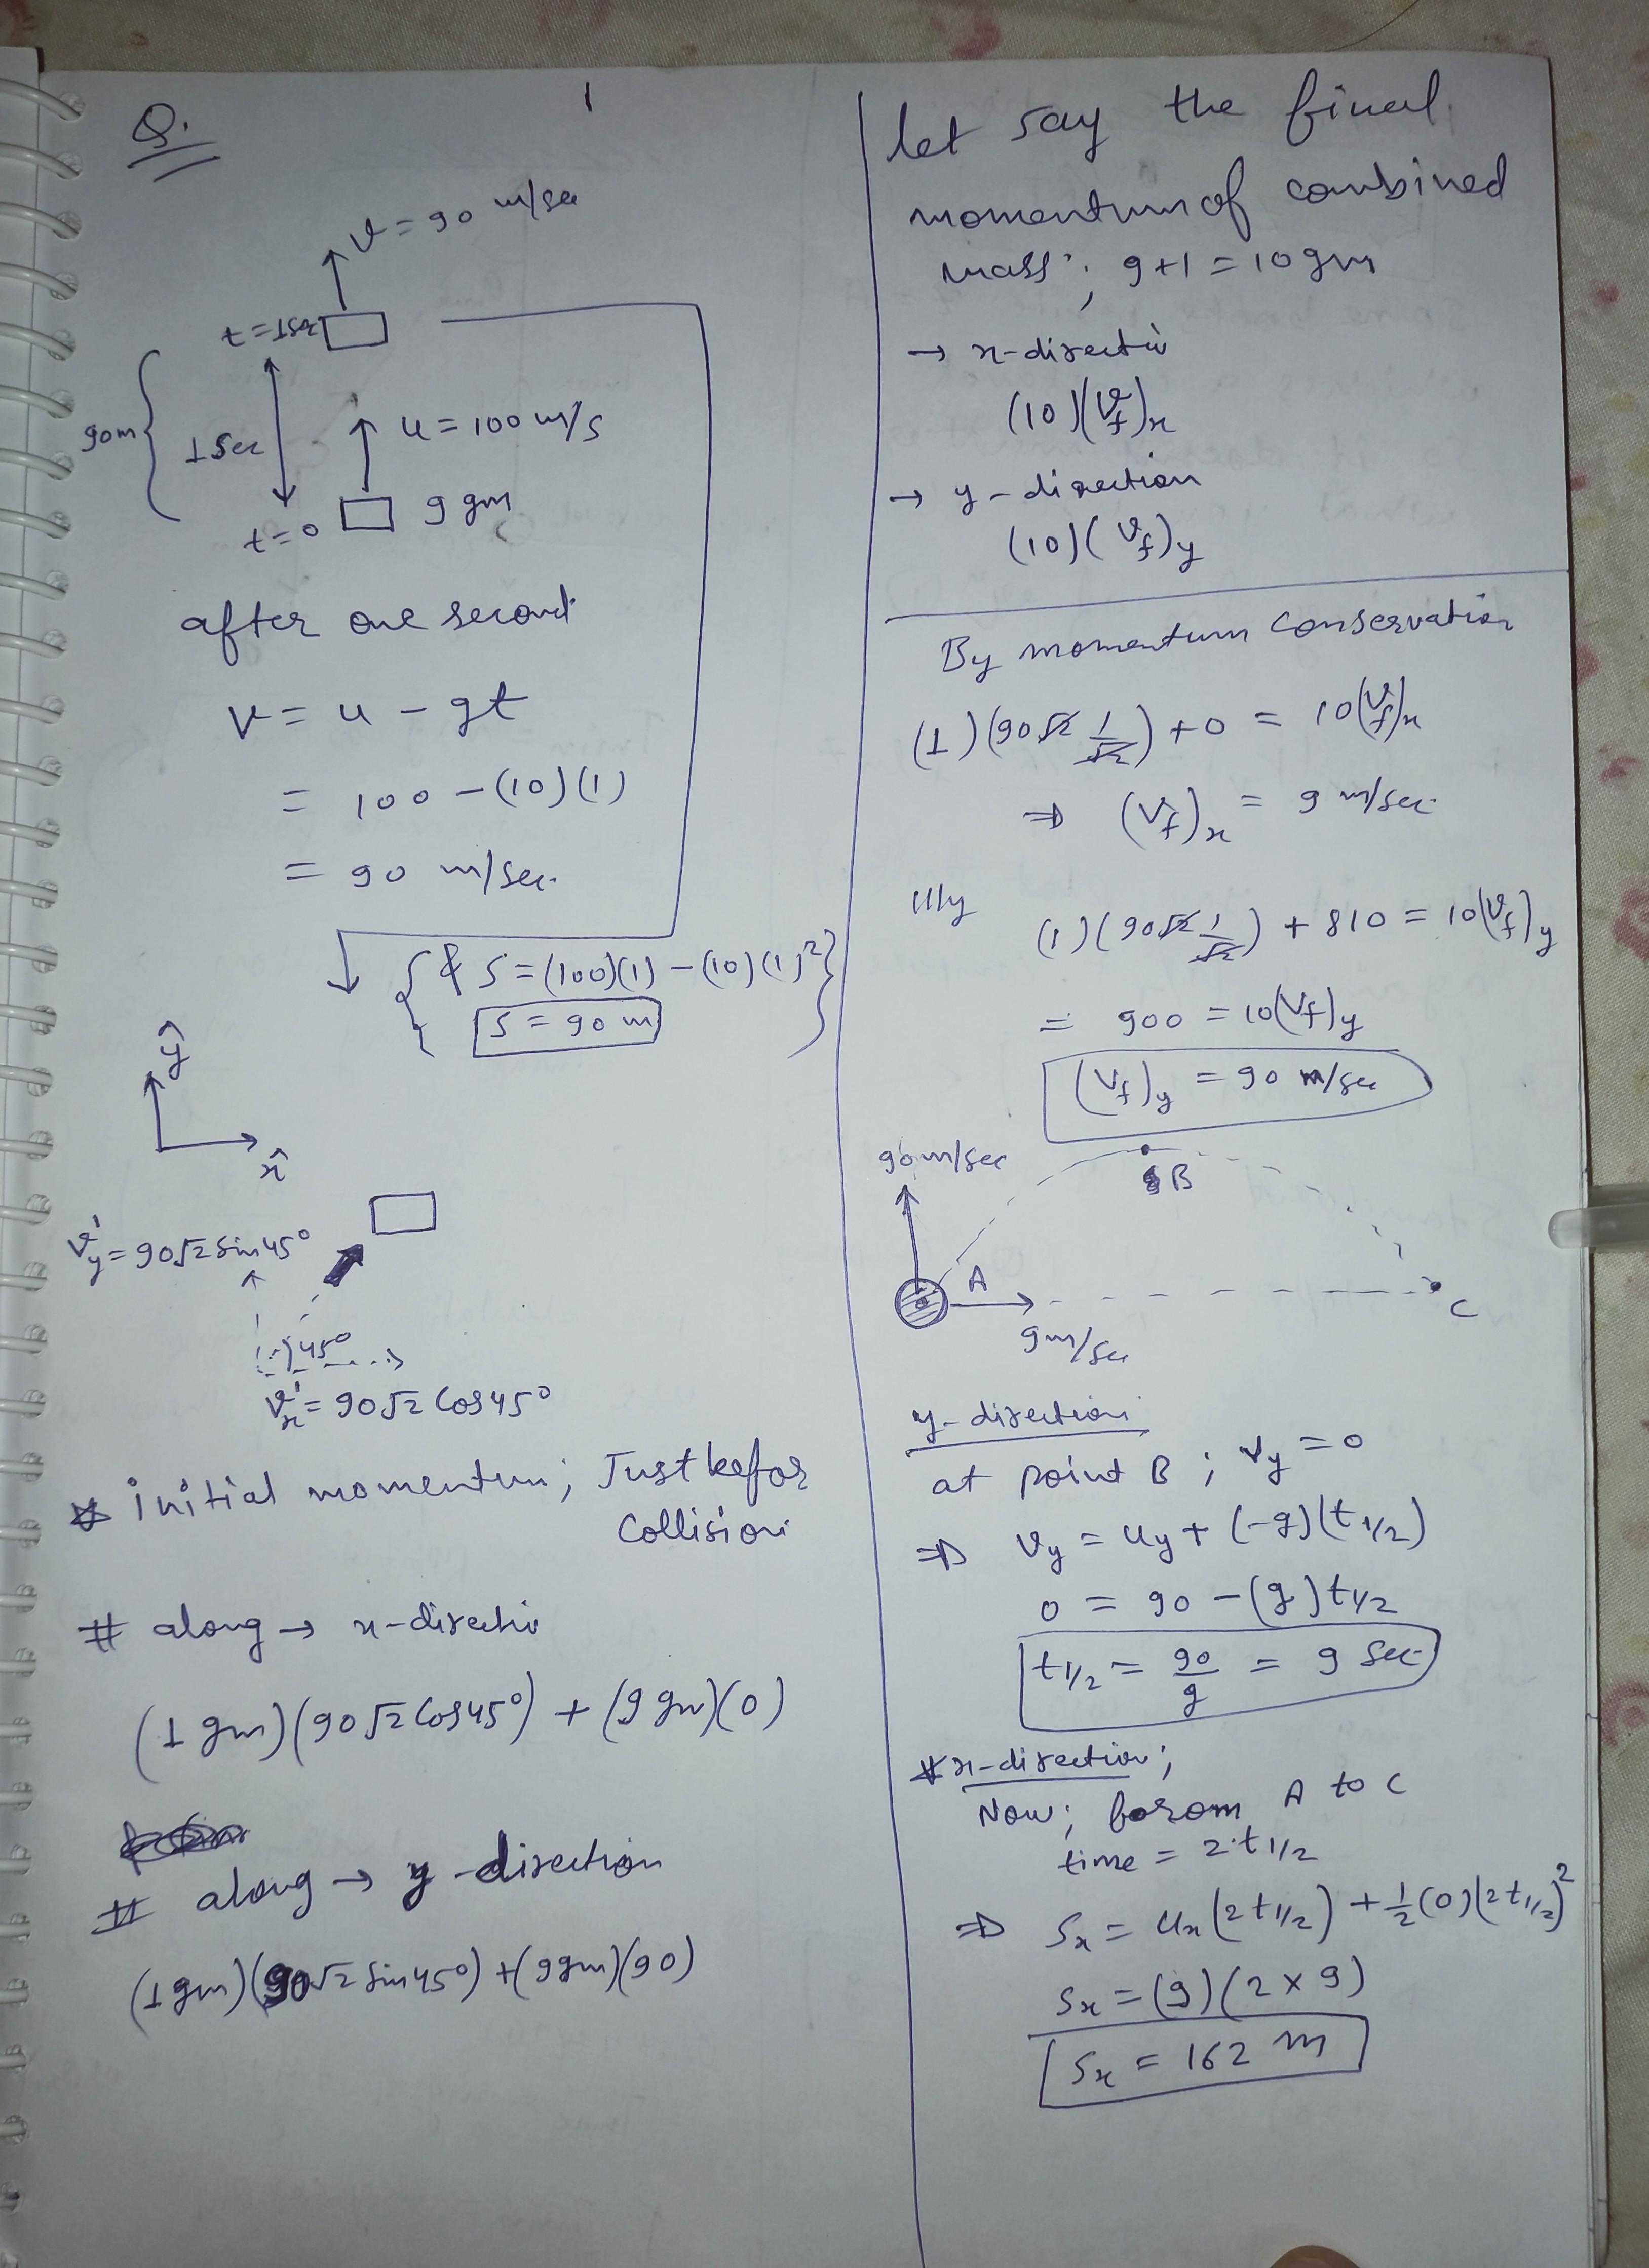 Q.
1
v = 90 m/sec
t=1sec
90m
1 Sec
u = 100 m/s
t=0
9 gm
after one second
v = u - gt
= 100 - (10)(1)
= 90 m/sec.
{ & S = (100)(1) - (10)(1)² }
S = 90 m
ŷ
x̂
v'y = 90√2 sin45°
45°
v'x = 90√2 Cos45°
* initial momentum; Just befor
Collision
# along → x-directio
(1 gm)(90√2 Cos45°) + (9 gm)(0)
# along → y-direction
(1gm)(90√2 Sin45°) + (9gm)(90)
let say the final
momentum of combined
mass; 9+1 = 10gm
→ x-directio
(10)(vf)x
→ y-direction
(10)(vf)y
By momentum conservation
(1)(90√2 1/√2) + 0 = 10(vf)x
⇒ (Vf)x = 9 m/sec.
Illy
(1)(90√2 1/√2) + 810 = 10(vf)y
= 900 = 10(Vf)y
(Vf)y = 90 m/sec
90m/sec
B
A
C
9m/sec
y-direction
at point B ; Vy = 0
⇒ Vy = uy + (-g)(t1/2)
0 = 90 - (g)t1/2
t1/2 = 90/g = 9 Sec
* x-direction;
Now; from A to C
time = 2·t1/2
⇒ Sx = ux(2t1/2) + 1/2(0)(2t1/2)²
Sx = (9)(2×9)
Sx = 162 m